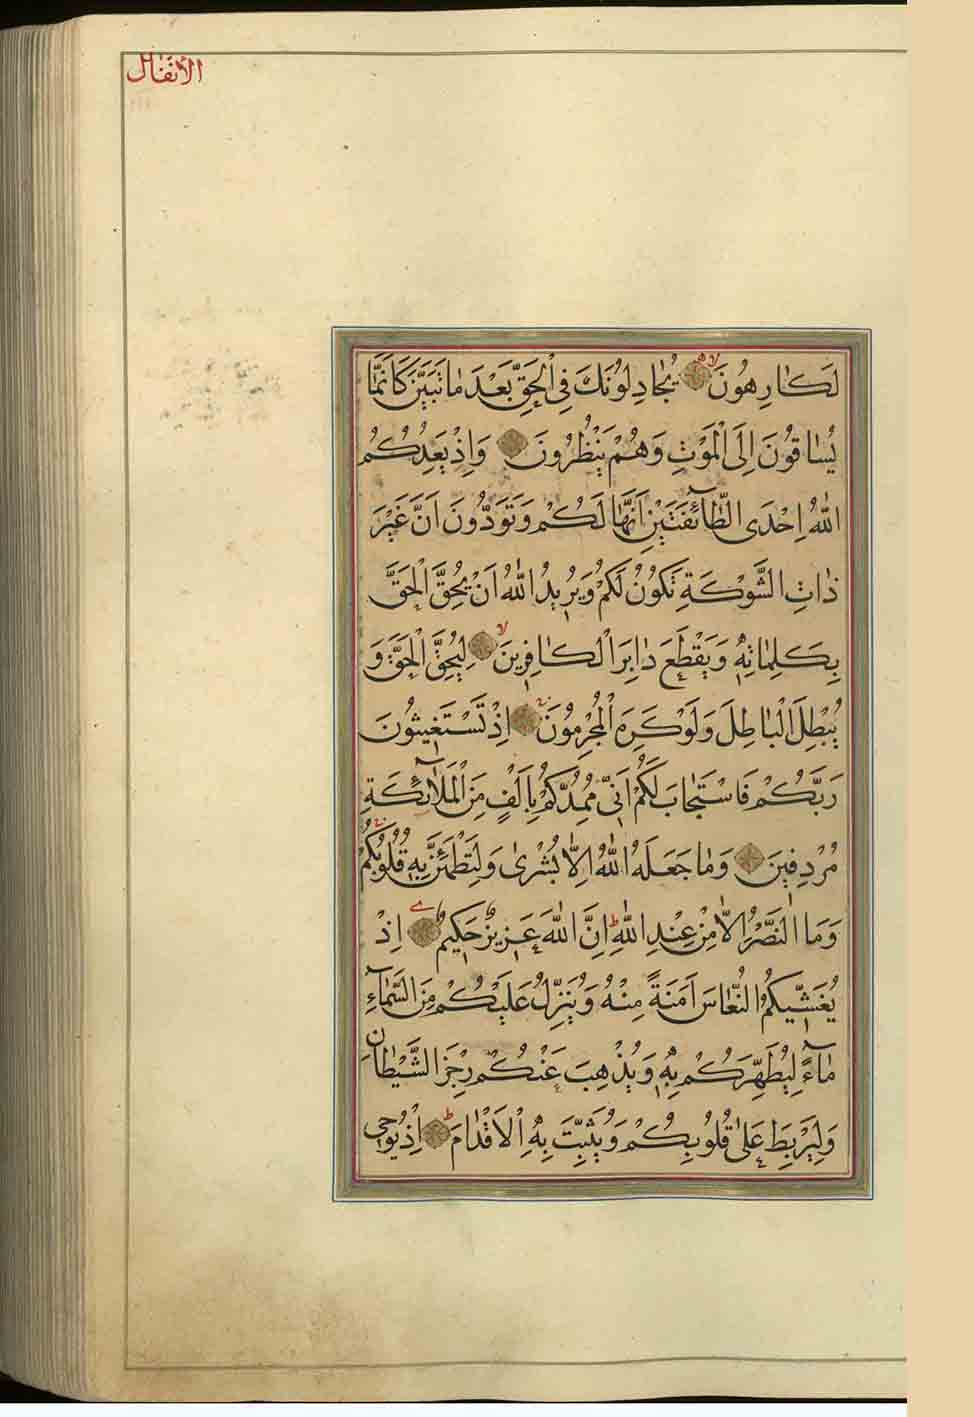 الأنفال
لَكَارِهُونَ يُجَادِلُونَكَ فِي الْحَقِّ بَعْدَ مَا تَبَيَّنَ كَأَنَّمَا
يُسَاقُونَ إِلَى الْمَوْتِ وَهُمْ يَنْظُرُونَ وَإِذْ يَعِدُكُمُ
اللّٰهُ إِحْدَى الطَّآئِفَتَيْنِ أَنَّهَا لَكُمْ وَتَوَدُّونَ أَنَّ غَيْرَ
ذَاتِ الشَّوْكَةِ تَكُونُ لَكُمْ وَيُرِيدُ اللّٰهُ أَنْ يُحِقَّ الْحَقَّ
بِكَلِمَاتِهِ وَيَقْطَعَ دَابِرَ الْكَافِرِينَ لِيُحِقَّ الْحَقَّ وَ
يُبْطِلَ الْبَاطِلَ وَلَوْ كَرِهَ الْمُجْرِمُونَ إِذْ تَسْتَغِيثُونَ
رَبَّكُمْ فَاسْتَجَابَ لَكُمْ أَنِّي مُمِدُّكُمْ بِأَلْفٍ مِنَ الْمَلَآئِكَةِ
مُرْدِفِينَ وَمَا جَعَلَهُ اللّٰهُ إِلَّا بُشْرٰى وَلِتَطْمَئِنَّ بِهِ قُلُوبُكُمْ
وَمَا النَّصْرُ إِلَّا مِنْ عِنْدِ اللّٰهِ إِنَّ اللّٰهَ عَزِيزٌ حَكِيمٌ إِذْ
يُغَشِّيكُمُ النُّعَاسَ أَمَنَةً مِنْهُ وَيُنَزِّلُ عَلَيْكُمْ مِنَ السَّمَآءِ
مَآءً لِيُطَهِّرَكُمْ بِهِ وَيُذْهِبَ عَنْكُمْ رِجْزَ الشَّيْطَانِ
وَلِيَرْبِطَ عَلٰى قُلُوبِكُمْ وَيُثَبِّتَ بِهِ الْأَقْدَامَ إِذْ يُوحِي